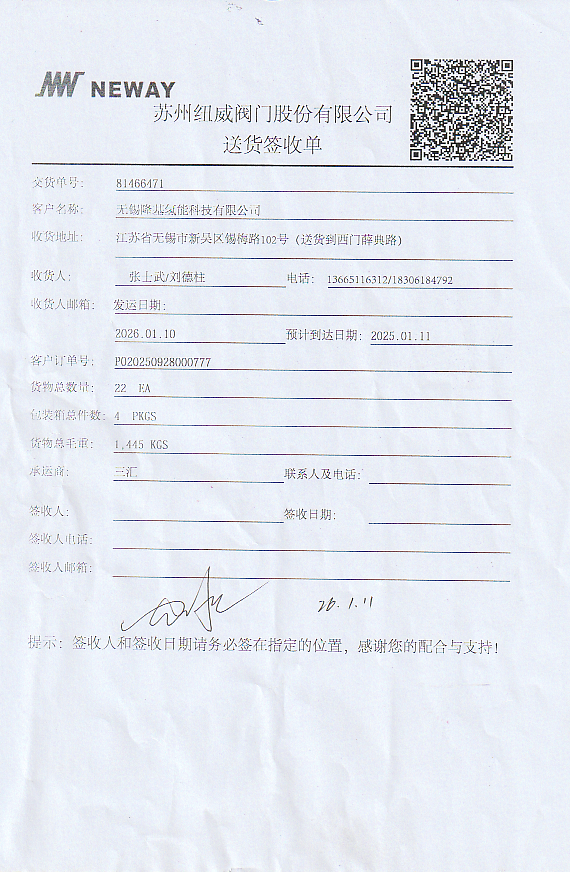 NEWAY
苏州纽威阀门股份有限公司
送货签收单
交货单号: 81466471
客户名称: 无锡隆基氢能科技有限公司
收货地址: 江苏省无锡市新吴区锡梅路102号 (送货到西门薛典路)
收货人: 张士武/刘德柱 电话: 13665116312/18306184792
收货人邮箱: 发运日期:
2026.01.10 预计到达日期: 2025.01.11
客户订单号: PO20250928000777
货物总数量: 22 EA
包装箱总件数: 4 PKGS
货物总毛重: 1,445 KGS
承运商: 三汇 联系人及电话:
签收人: 签收日期:
签收人电话:
签收人邮箱:
26.1.11
提示: 签收人和签收日期请务必签在指定的位置, 感谢您的配合与支持!